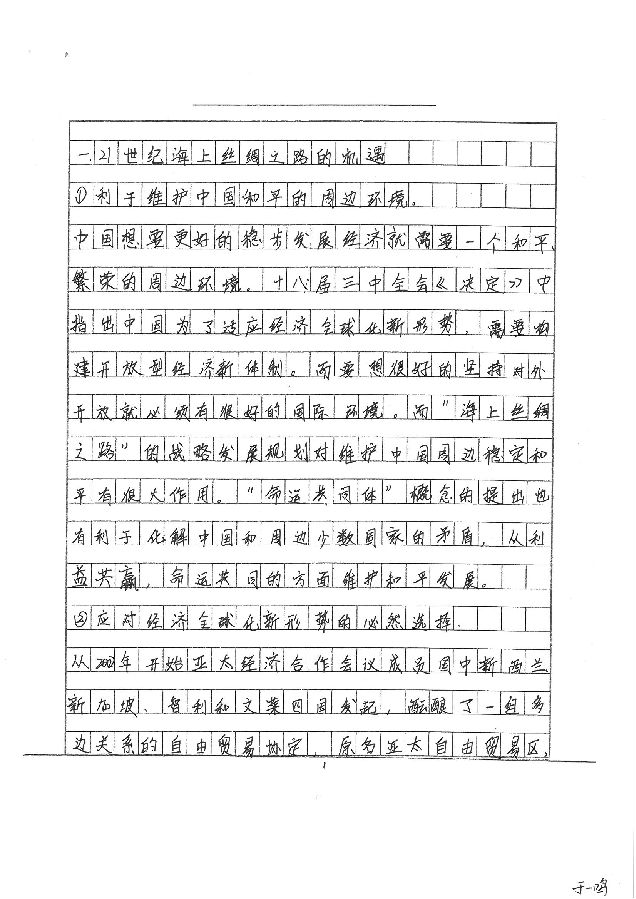 一.21世纪海上丝绸之路的机遇
①利于维护中国和平的周边环境.
中国想要更好的稳步发展经济就需要一个和平、
繁荣的周边环境。十八届三中全会《决定》中
指出中国为了适应经济全球化新形势，需要构
建开放型经济新体制。而要想很好的坚持对外
开放就必须有很好的国际环境。而"海上丝绸
之路"的战略发展规划对维护中国周边稳定和
平有很大作用。"命运共同体"概念的提出也
有利于化解中国和周边少数国家的矛盾，从利
益共赢，命运共同的方面维护和平发展。
②应对经济全球化新形势的必然选择.
从2002年开始亚太经济合作会议成员国中新西兰
新加坡、智利和文莱四国发起，酝酿了一组多
边关系的自由贸易协定，原名亚太自由贸易区,
1
于一鸣